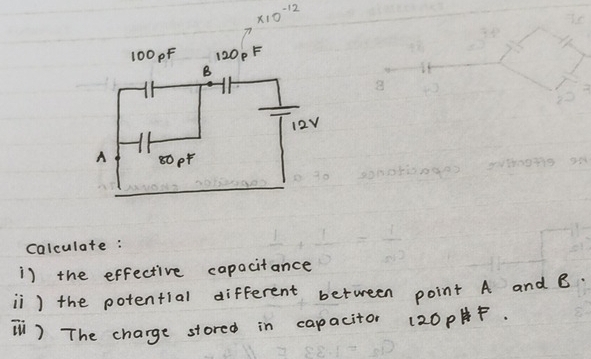 ×10⁻¹²
100 pF 120 p F
B
12V
A
80 pF
Calculate :
i) the effective capacitance
ii ) the potential different between point A and B .
iii ) The charge stored in capacitor 120 p F .